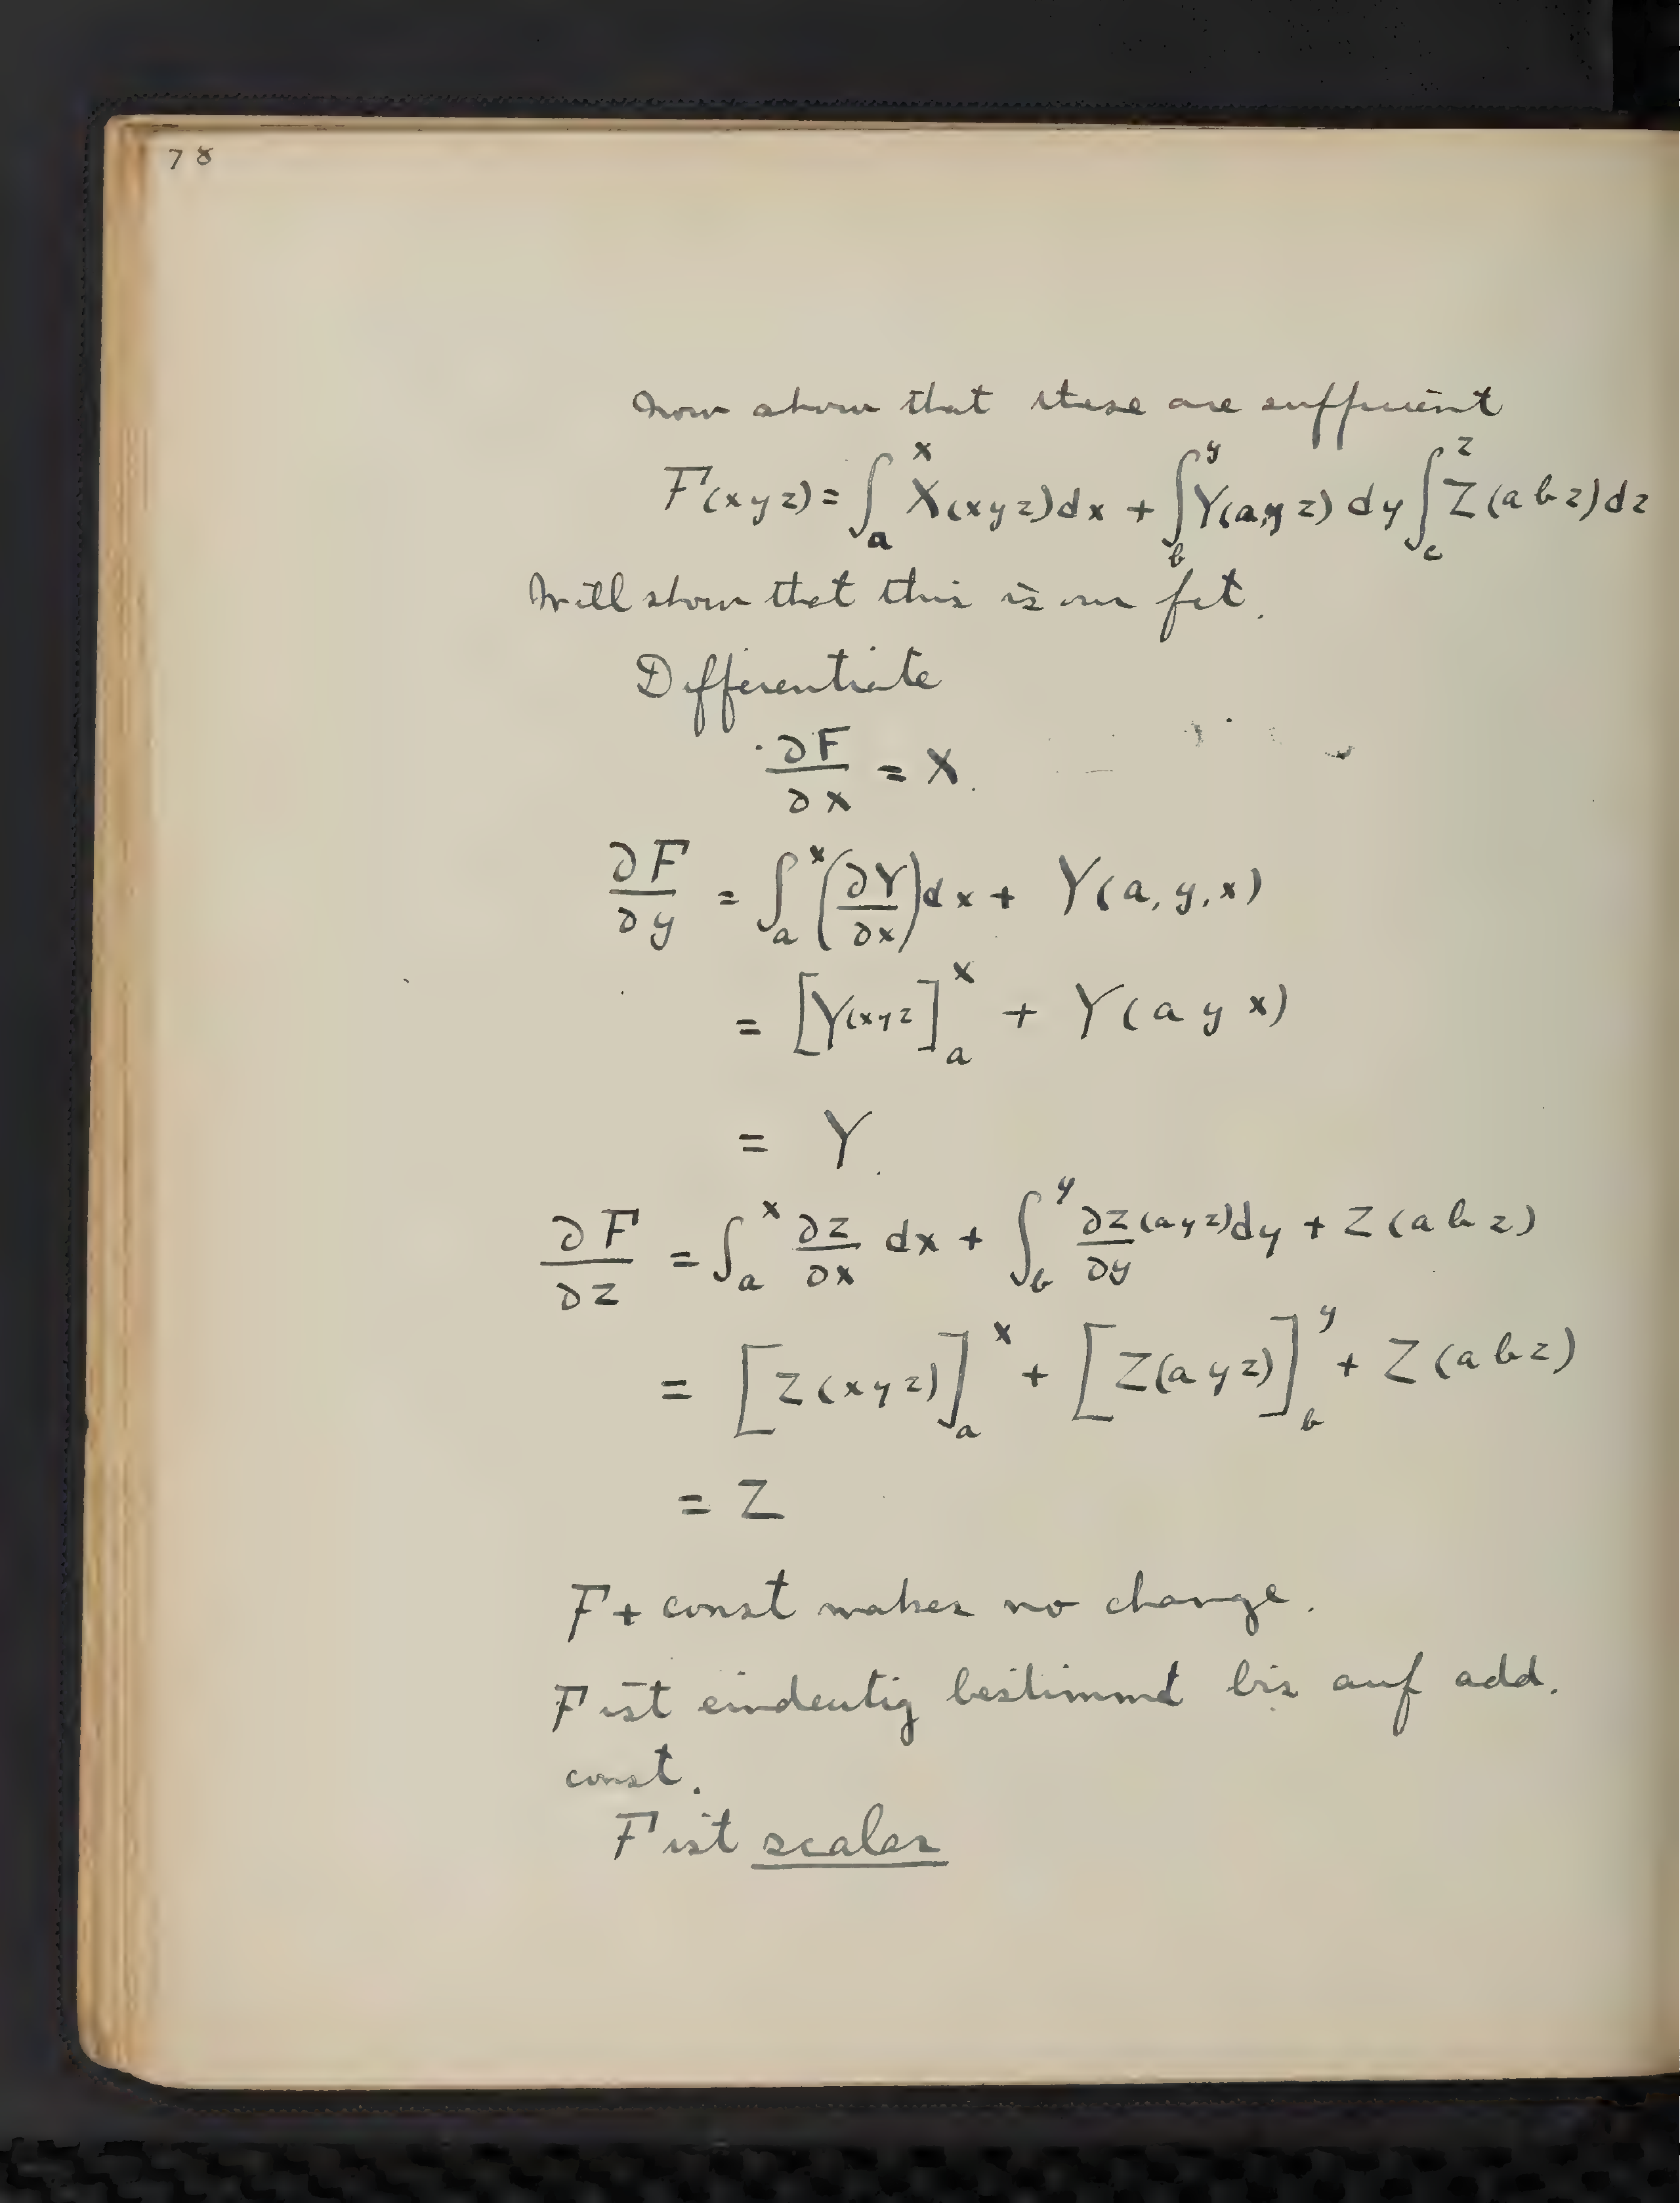 78
Now show that these are sufficient
F(xyz) = ∫_a^x X(xyz)dx + ∫_b^y Y(a,y z) dy ∫_c^z Z(a b z)dz
Will show that this is our fct.
Differentiate
∂F/∂x = X.
∂F/∂y = ∫_a^x (∂Y/∂x)dx + Y(a, y, x)
= [Y(xyz]_a^x + Y(a y x)
= Y.
∂F/∂z = ∫_a^x ∂Z/∂x dx + ∫_b^y ∂Z/∂y (ayz)dy + Z(a b z)
= [Z(xyz)]_a^x + [Z(a y z)]_b^y + Z(a b z)
= Z
F + const makes no change.
F ist eindeutig bestimmt bis auf add.
const.
F ist scalar